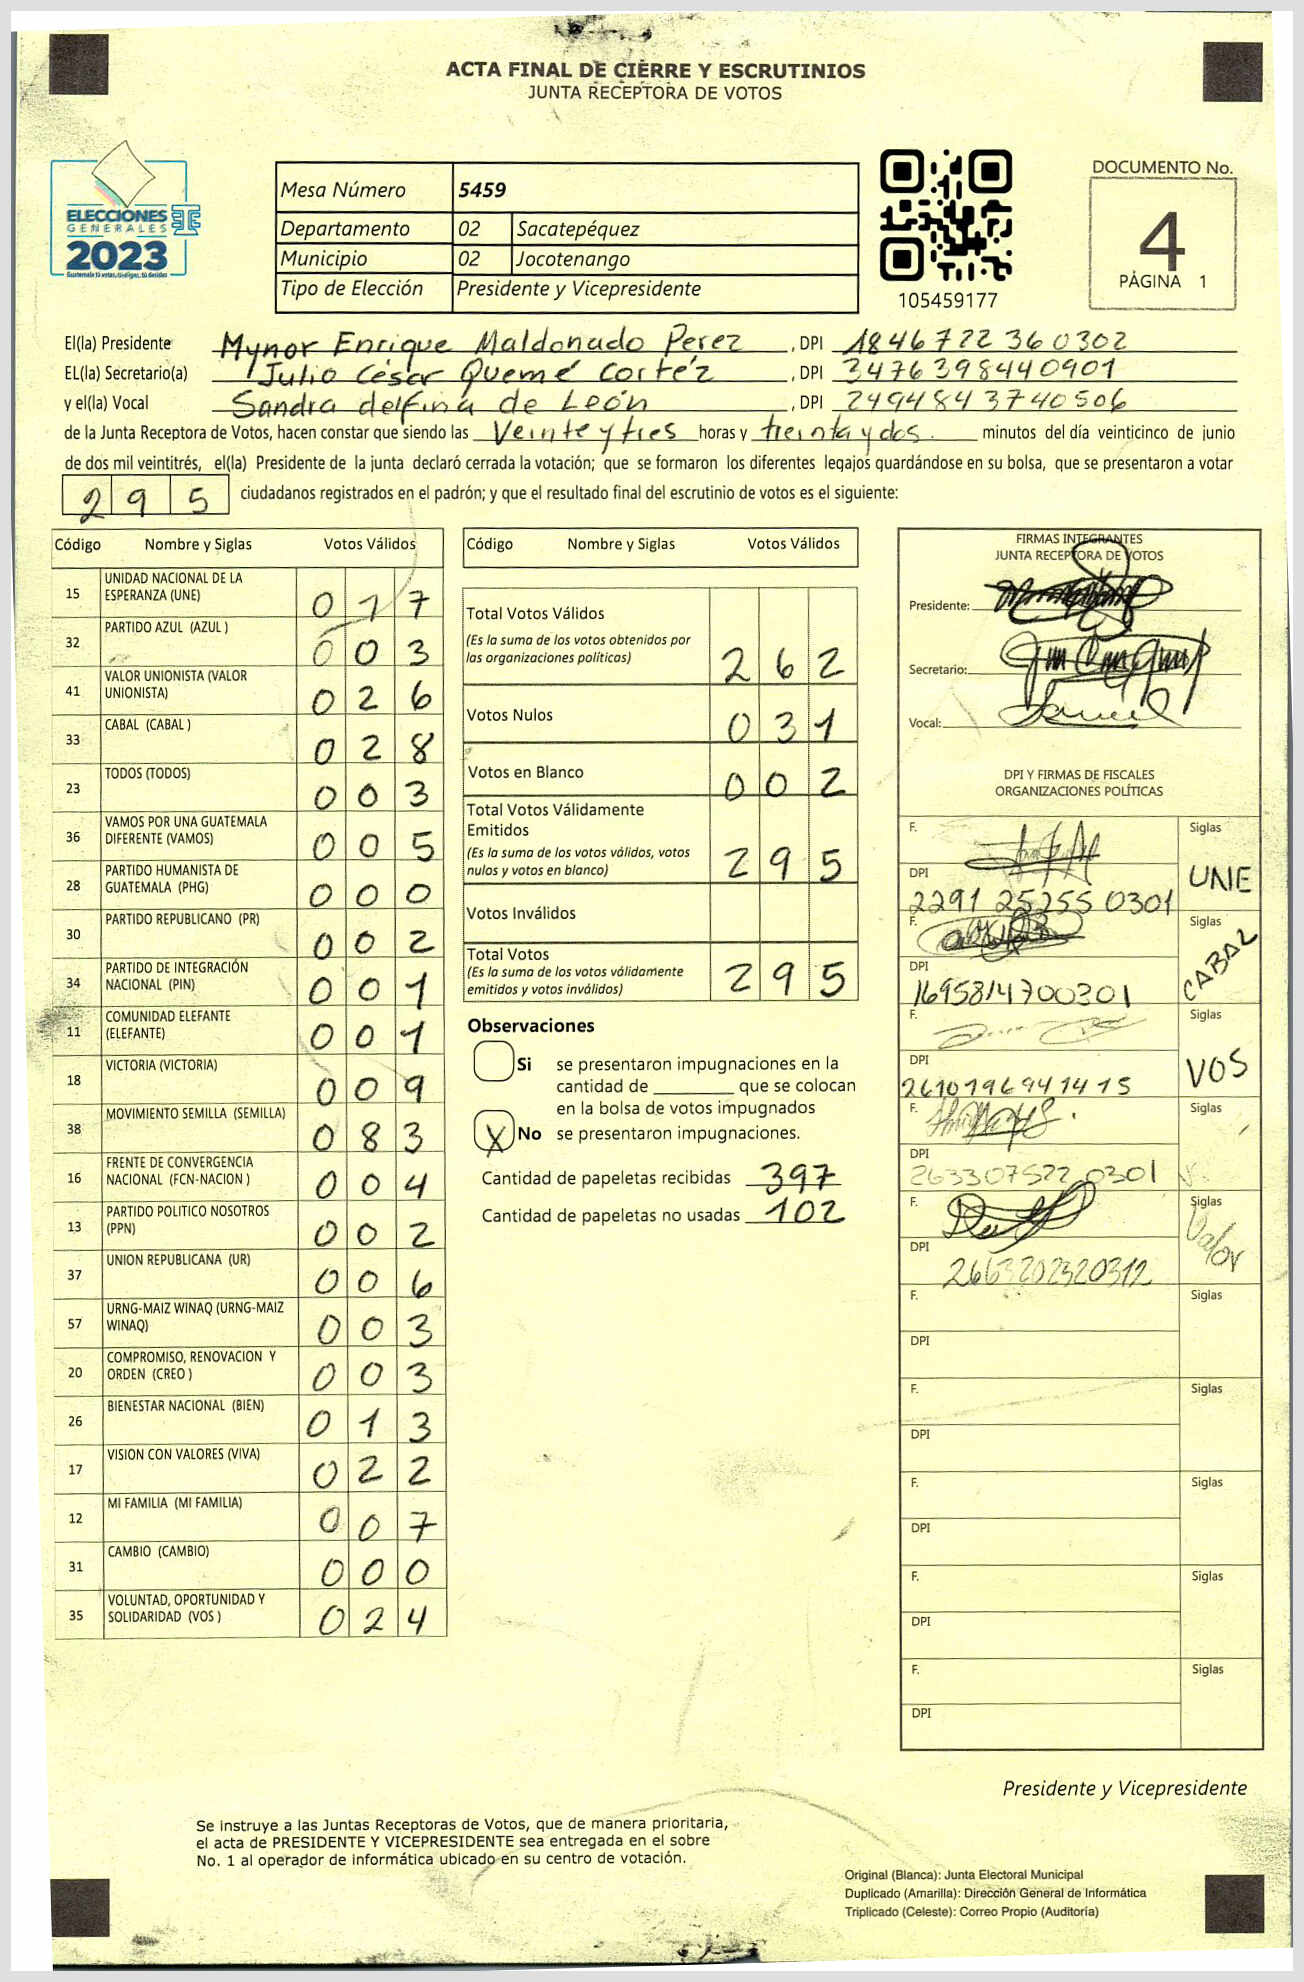 ACTA FINAL DE CIERRE Y ESCRUTINIOS
JUNTA RECEPTORA DE VOTOS
ELECCIONES
GENERALES
2023
Mesa Número 5459
Departamento 02 Sacatepéquez
Municipio 02 Jocotenango
Tipo de Elección Presidente y Vicepresidente
105459177
DOCUMENTO No.
4
PÁGINA 1
El(la) Presidente Mynor Enrique Maldonado Perez , DPI 1846722360302
EL(la) Secretario(a) Julio César Quemé Cortéz , DPI 3476398440901
y el(la) Vocal Sandra delfina de León , DPI 2494843740506
de la Junta Receptora de Votos, hacen constar que siendo las Veinte y tres horas y treinta y dos. minutos del día veinticinco de junio
de dos mil veintitrés, el(la) Presidente de la junta declaró cerrada la votación; que se formaron los diferentes legajos guardándose en su bolsa, que se presentaron a votar
295 ciudadanos registrados en el padrón; y que el resultado final del escrutinio de votos es el siguiente:
Código Nombre y Siglas Votos Válidos
15 UNIDAD NACIONAL DE LA ESPERANZA (UNE) 017
32 PARTIDO AZUL (AZUL ) 003
41 VALOR UNIONISTA (VALOR UNIONISTA) 026
33 CABAL (CABAL ) 028
23 TODOS (TODOS) 003
36 VAMOS POR UNA GUATEMALA DIFERENTE (VAMOS) 005
28 PARTIDO HUMANISTA DE GUATEMALA (PHG) 000
30 PARTIDO REPUBLICANO (PR) 002
34 PARTIDO DE INTEGRACIÓN NACIONAL (PIN) 001
11 COMUNIDAD ELEFANTE (ELEFANTE) 001
18 VICTORIA (VICTORIA) 009
38 MOVIMIENTO SEMILLA (SEMILLA) 083
16 FRENTE DE CONVERGENCIA NACIONAL (FCN-NACION ) 004
13 PARTIDO POLITICO NOSOTROS (PPN) 002
37 UNION REPUBLICANA (UR) 006
57 URNG-MAIZ WINAQ (URNG-MAIZ WINAQ) 003
20 COMPROMISO, RENOVACION Y ORDEN (CREO ) 003
26 BIENESTAR NACIONAL (BIEN) 013
17 VISION CON VALORES (VIVA) 022
12 MI FAMILIA (MI FAMILIA) 007
31 CAMBIO (CAMBIO) 000
35 VOLUNTAD, OPORTUNIDAD Y SOLIDARIDAD (VOS ) 024
Código Nombre y Siglas Votos Válidos
Total Votos Válidos
(Es la suma de los votos obtenidos por
las organizaciones políticas) 262
Votos Nulos 031
Votos en Blanco 002
Total Votos Válidamente
Emitidos
(Es la suma de los votos válidos, votos
nulos y votos en blanco) 295
Votos Inválidos
Total Votos
(Es la suma de los votos válidamente
emitidos y votos inválidos) 295
Observaciones
Si se presentaron impugnaciones en la
cantidad de ________ que se colocan
en la bolsa de votos impugnados
X No se presentaron impugnaciones.
Cantidad de papeletas recibidas 397
Cantidad de papeletas no usadas 102
FIRMAS INTEGRANTES
JUNTA RECEPTORA DE VOTOS
Presidente:
Secretario:
Vocal:
DPI Y FIRMAS DE FISCALES
ORGANIZACIONES POLÍTICAS
F. Siglas
UNE
DPI
2291 25255 0301
F. Siglas
CABAL
DPI
1695814700301
F. Siglas
VOS
DPI
2610196941415
F. Siglas
DPI
2633307522 0301
F. Siglas
Valor
DPI
2663202320312
F. Siglas
DPI
F. Siglas
DPI
F. Siglas
DPI
F. Siglas
DPI
F. Siglas
DPI
Presidente y Vicepresidente
Se instruye a las Juntas Receptoras de Votos, que de manera prioritaria,
el acta de PRESIDENTE Y VICEPRESIDENTE sea entregada en el sobre
No. 1 al operador de informática ubicado en su centro de votación.
Original (Blanca): Junta Electoral Municipal
Duplicado (Amarilla): Dirección General de Informática
Triplicado (Celeste): Correo Propio (Auditoría)